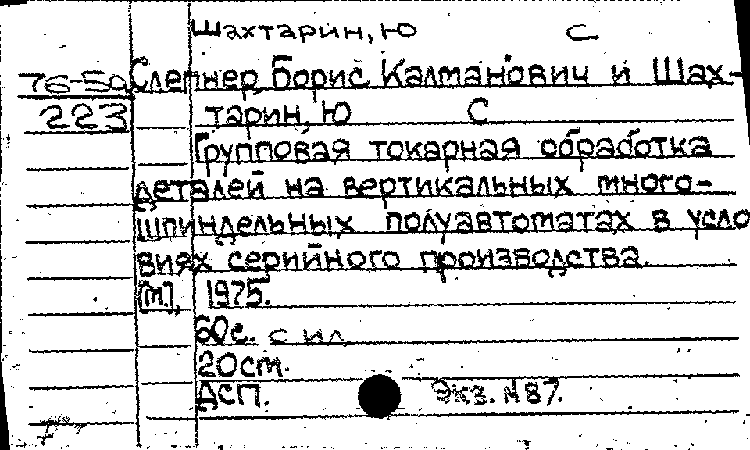 Шахтарин, Ю С
76-50 Слепнер, Борис Калманович и Шах-
223 тарин, Ю С
Групповая токарная обработка
деталей на вертикальных много-
шпиндельных полуавтоматах в усло
виях серийного производства.
[М], 1975.
60с. с ил.
20см.
ДСП. Экз. №87.